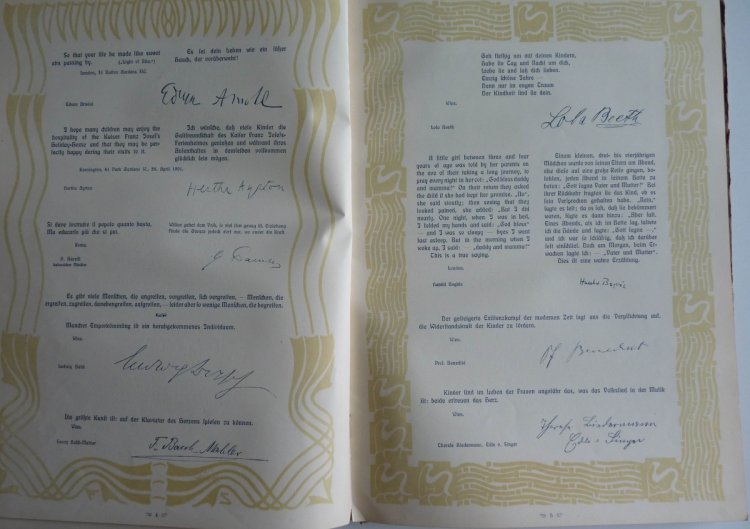 So that your life be made like sweet
airs passing by. („Light of Asia.“)
London, 31 Bolton Gardens SW.
Es sei dein Leben wie ein süßer
Hauch, der vorüberweht!
Edwin Arnold
Edwin Arnold
I hope many children may enjoy the
hospitality of the Kaiser Franz Josef's
Holiday-Home and that they may be
perfectly happy during their visits to it.
Kensington, 41 Park Gardens W., 26. April 1901.
Ich wünsche, daß viele Kinder die
Gastfreundschaft des Kaiser Franz Josefs-
Ferienheimes genießen und während ihres
Aufenthaltes in demselben vollkommen
glücklich sein mögen.
Hertha Ayrton
Hertha Ayrton
Si deve istruire il popolo quanto basta,
Ma educarlo più che si può.
Roma.
Es gibt viele Menschen, die angreifen, vorgreifen, sich vergreifen, — Menschen, die
ergreifen, zugreifen, danebengreifen, aufgreifen, — leider aber so wenige Menschen, die begreifen.
Mancher Emporkömmling ist ein herabgekommenes Individuum.
Wien.
Die größte Kunst ist: auf der Klaviatur des Herzens spielen zu können.
Wien.
Geh fleißig um mit deinen Kindern,
Habe sie Tag und Nacht um dich,
Und liebe sie und laß dich lieben
Einzig schöne Jahre —
Denn nur im engen Traum
Der Kindheit sind sie dein.
Wien.
Lola Beeth
Lola Beeth
A little girl between three and four
years of age was told by her parents on
the eve of their taking a long journey, to
pray every night in her cot: „God bless daddy
and mamma!“ On their return they asked
the child if she had kept her promise. „No“,
she said stoutly; then seeing that they
looked pained, she added: „But I did
nearly. One night, when I was in bed,
I folded my hands and said: „God bless“
— and I was so sleepy — byes I went
fast asleep. But in the morning when I
woke up, I said: „ — daddy and mamma!“
This is a true saying.
London.
Einem kleinen, drei- bis vierjährigen
Mädchen wurde von seinen Eltern am Abend,
ehe diese auf eine große Reise gingen, be-
fohlen, jeden Abend in seinem Bette zu
beten: „Gott segne Vater und Mutter!“ Bei
ihrer Rückkehr fragten sie das Kind, ob es
sein Versprechen gehalten habe. „Nein,“
sagte es fest; da es sah, daß sie bekümmert
waren, fügte es dann hinzu: „Aber fast.
Eines Abends, als ich im Bette lag, faltete
ich die Hände und sagte: „Gott segne —“
und ich war so schläfrig, daß ich darüber
fest einschlief. Doch am Morgen, beim Er-
wachen sagte ich: — „Vater und Mutter“.
Dies ist eine wahre Erzählung.
Der gesteigerte Existenzkampf der modernen Zeit legt uns die Verpflichtung auf,
die Widerstandskraft der Kinder zu fördern.
Wien.
Prof. Benedikt
Of Benedikt
Kinder sind im Leben der Frauen ungefähr das, was das Volkslied in der Musik
ist: beide erfreuen das Herz.
Wien.
Therese Biedermann, Edle v. Singer
Therese Biedermann
Edle v. Singer